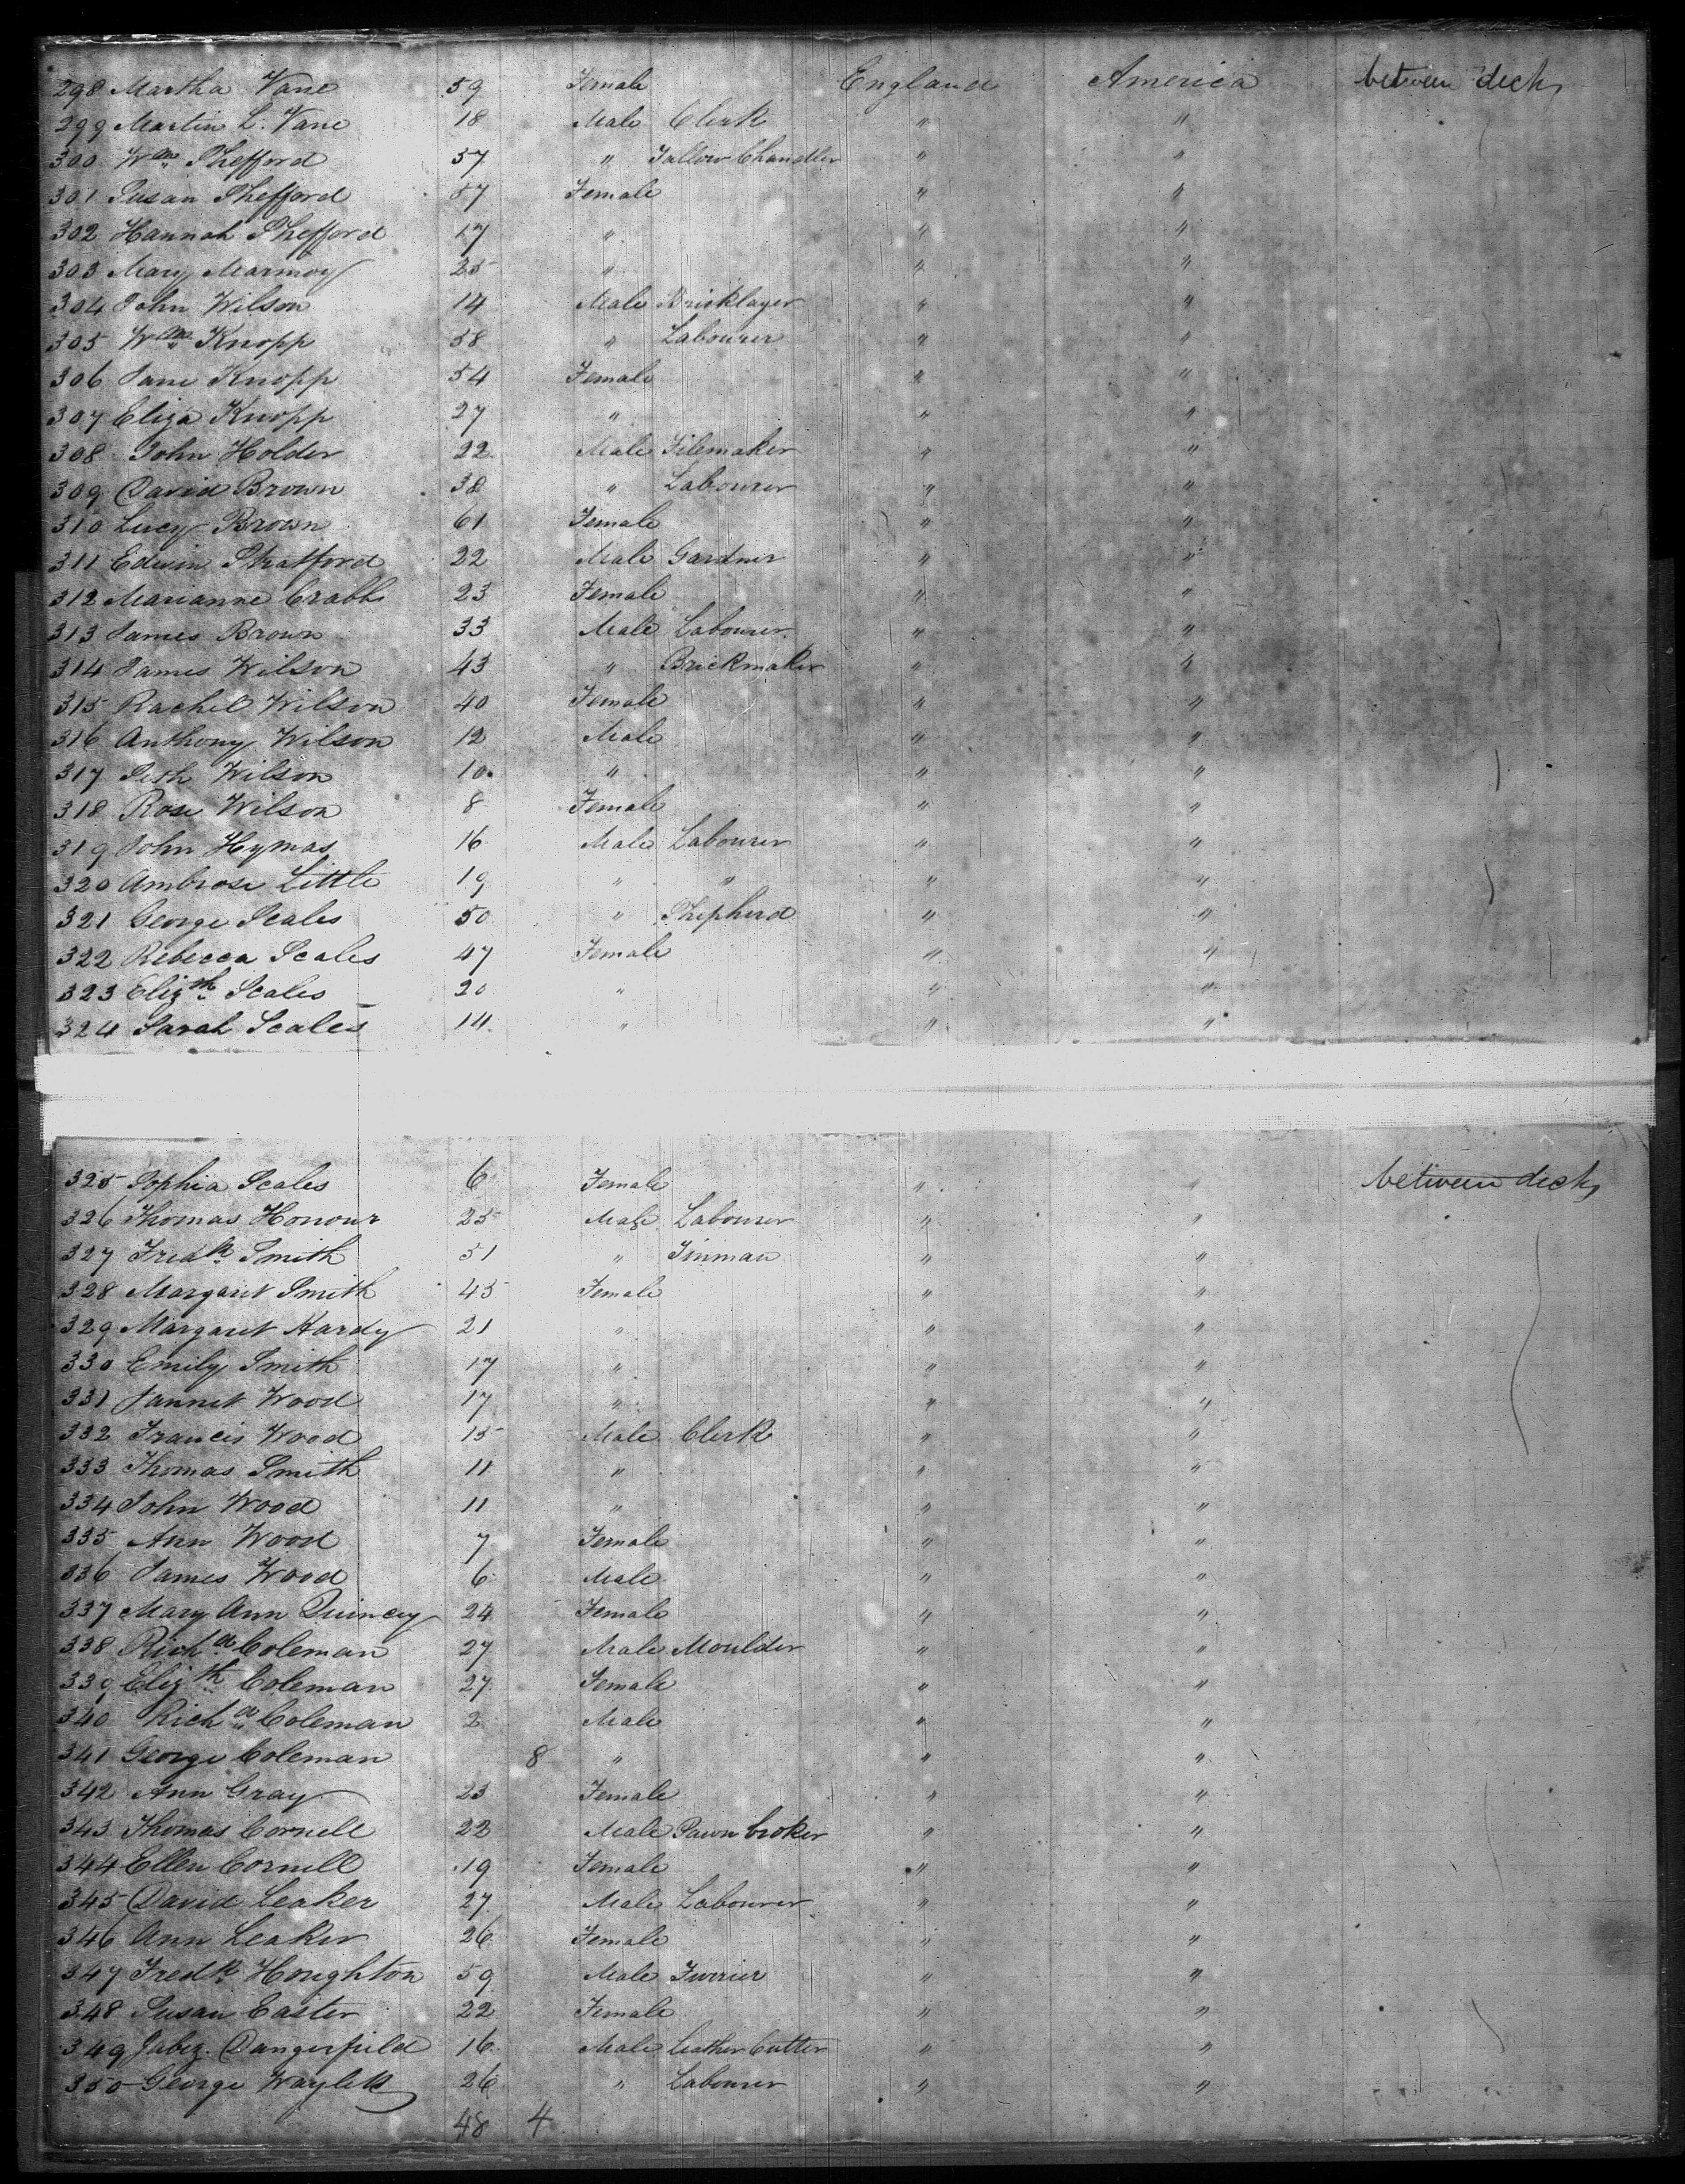 298 Martha Vane 59 Female England America between decks
299 Martin L. Vane 18 Male Clerk " "
300 Wm Shefford 57 " Tallow Chandler " "
301 Susan Shefford 57 Female " "
302 Hannah Shefford 17 " " "
303 Mary Marmoy 25 " " "
304 John Wilson 14 Male Bricklayer " "
305 Wm Knopp 58 " Labourer " "
306 Jane Knopp 54 Female " "
307 Eliza Knopp 27 " " "
308 John Holder 22 Male Filemaker " "
309 David Brown 38 " Labourer " "
310 Lucy Brown 61 Female " "
311 Edwin Stratford 22 Male Gardner " "
312 Marianne Crabb 23 Female " "
313 James Brown 33 Male Labourer " "
314 James Wilson 43 " Brickmaker " "
315 Rachel Wilson 40 Female " "
316 Anthony Wilson 12 Male " "
317 Seth Wilson 10 " " "
318 Rose Wilson 8 Female " "
319 John Hymas 16 Male Labourer " "
320 Ambrose Little 19 " " " "
321 George Scales 50 " Shepherd " "
322 Rebecca Scales 47 Female " "
323 Elizth Scales 20 " " "
324 Sarah Scales 14 " " "
325 Sophia Scales 6 Female " " between decks
326 Thomas Honour 25 Male Labourer " "
327 Fredk Smith 51 " Tinman " "
328 Margaret Smith 45 Female " "
329 Margaret Hardy 21 " " "
330 Emily Smith 17 " " "
331 Jannet Wood 17 " " "
332 Francis Wood 15 Male Clerk " "
333 Thomas Smith 11 " " "
334 John Wood 11 " " "
335 Ann Wood 7 Female " "
336 James Wood 6 Male " "
337 Mary Ann Quincey 24 Female " "
338 Richd Coleman 27 Male Moulder " "
339 Elizth Coleman 27 Female " "
340 Richd Coleman 2 Male " "
341 George Coleman 8 " " "
342 Ann Gray 23 Female " "
343 Thomas Cornell 22 Male Pawn broker " "
344 Ellen Cornell 19 Female " "
345 David Leaker 27 Male Labourer " "
346 Ann Leaker 26 Female " "
347 Fredk Houghton 59 Male Furrier " "
348 Susan Easter 22 Female " "
349 Jabez Dangerfield 16 Male Leather Cutter " "
350 George Waylett 26 " Labourer " "
48 4